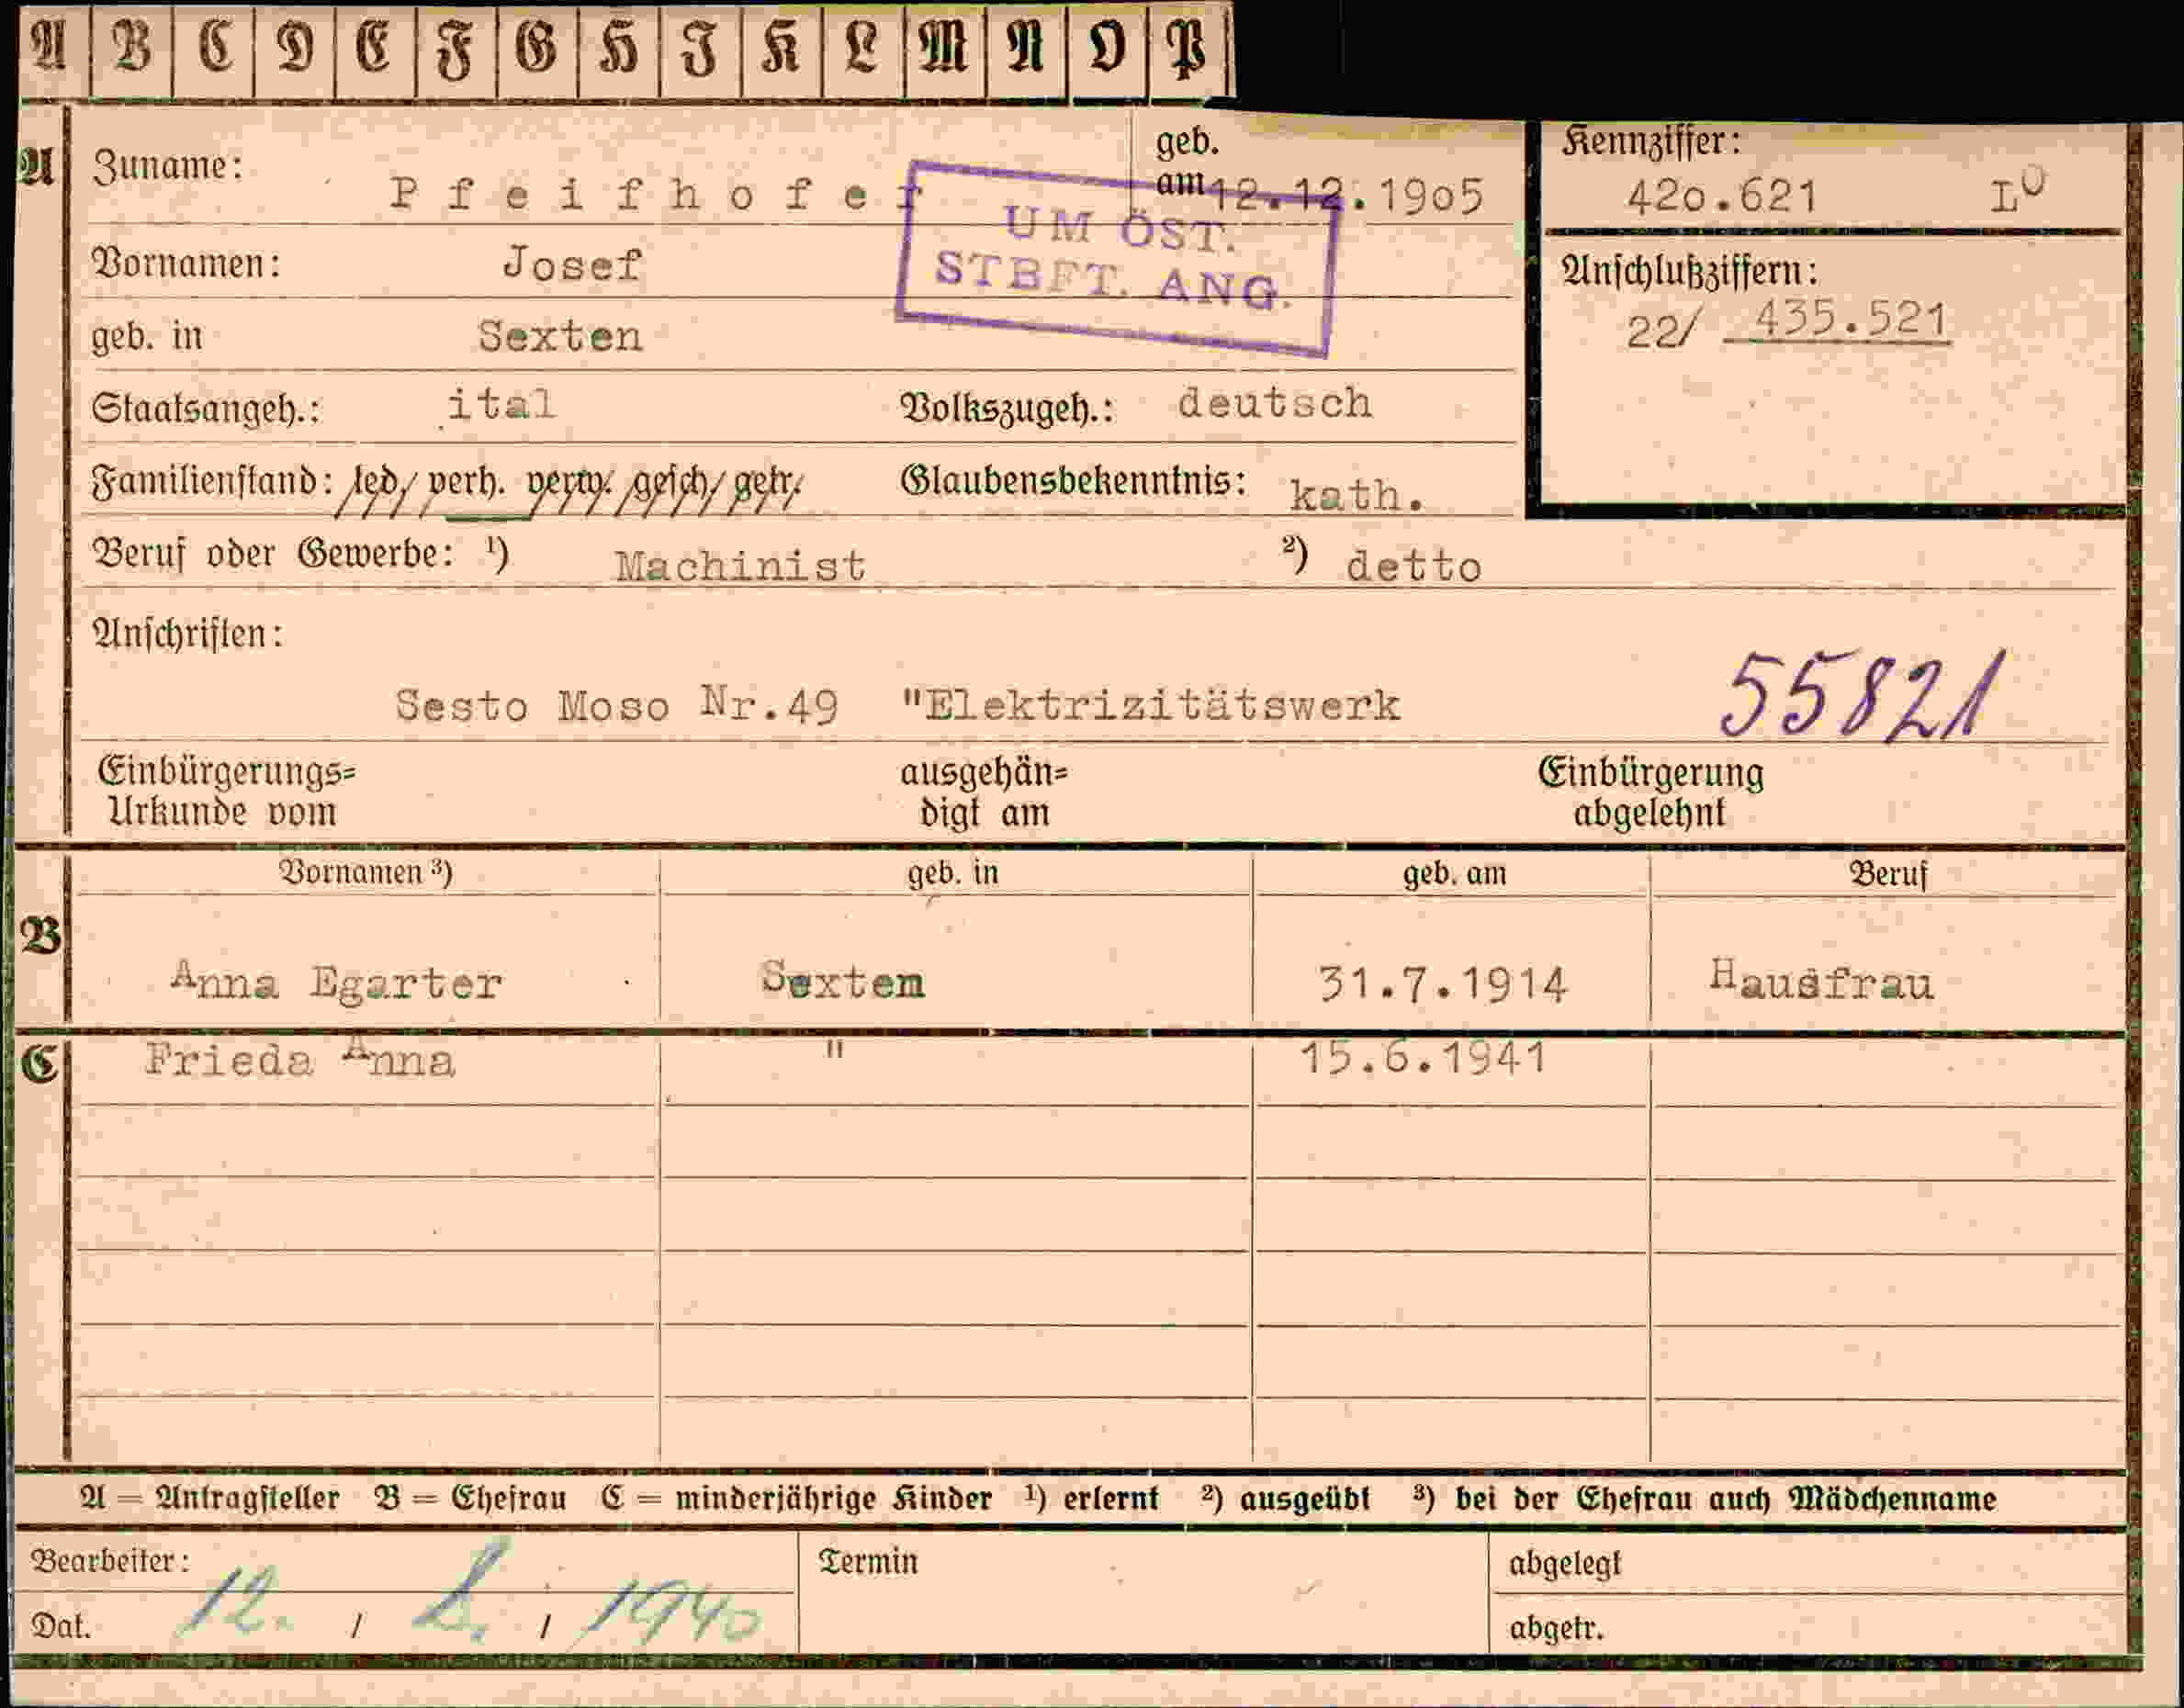 A B C D E F G H I K L M N O P
A Zuname: Pfeifhofer geb. am 12.12.1905 Kennziffer: 420.621 LO
UM ÖST. STBFT. ANG.
Vornamen: Josef Anschlußziffern:
22/ 435.521
geb. in Sexten
Staatsangeh.: ital Volkszugeh.: deutsch
Familienstand: led. verh. verw. gesch. getr. Glaubensbekenntnis: kath.
Beruf oder Gewerbe: ¹) Machinist ²) detto
Anschriften:
Sesto Moso Nr.49 "Elektrizitätswerk 55821
Einbürgerungs= ausgehän= Einbürgerung
Urkunde vom digt am abgelehnt
Vornamen ³) geb. in geb. am Beruf
B Anna Egarter Sexten 31.7.1914 Hausfrau
C Frieda Anna " 15.6.1941
A = Antragsteller B = Ehefrau C = minderjährige Kinder ¹) erlernt ²) ausgeübt ³) bei der Ehefrau auch Mädchenname
Bearbeiter: Termin abgelegt
Dat. 12. / 2. / 1940 abgetr.